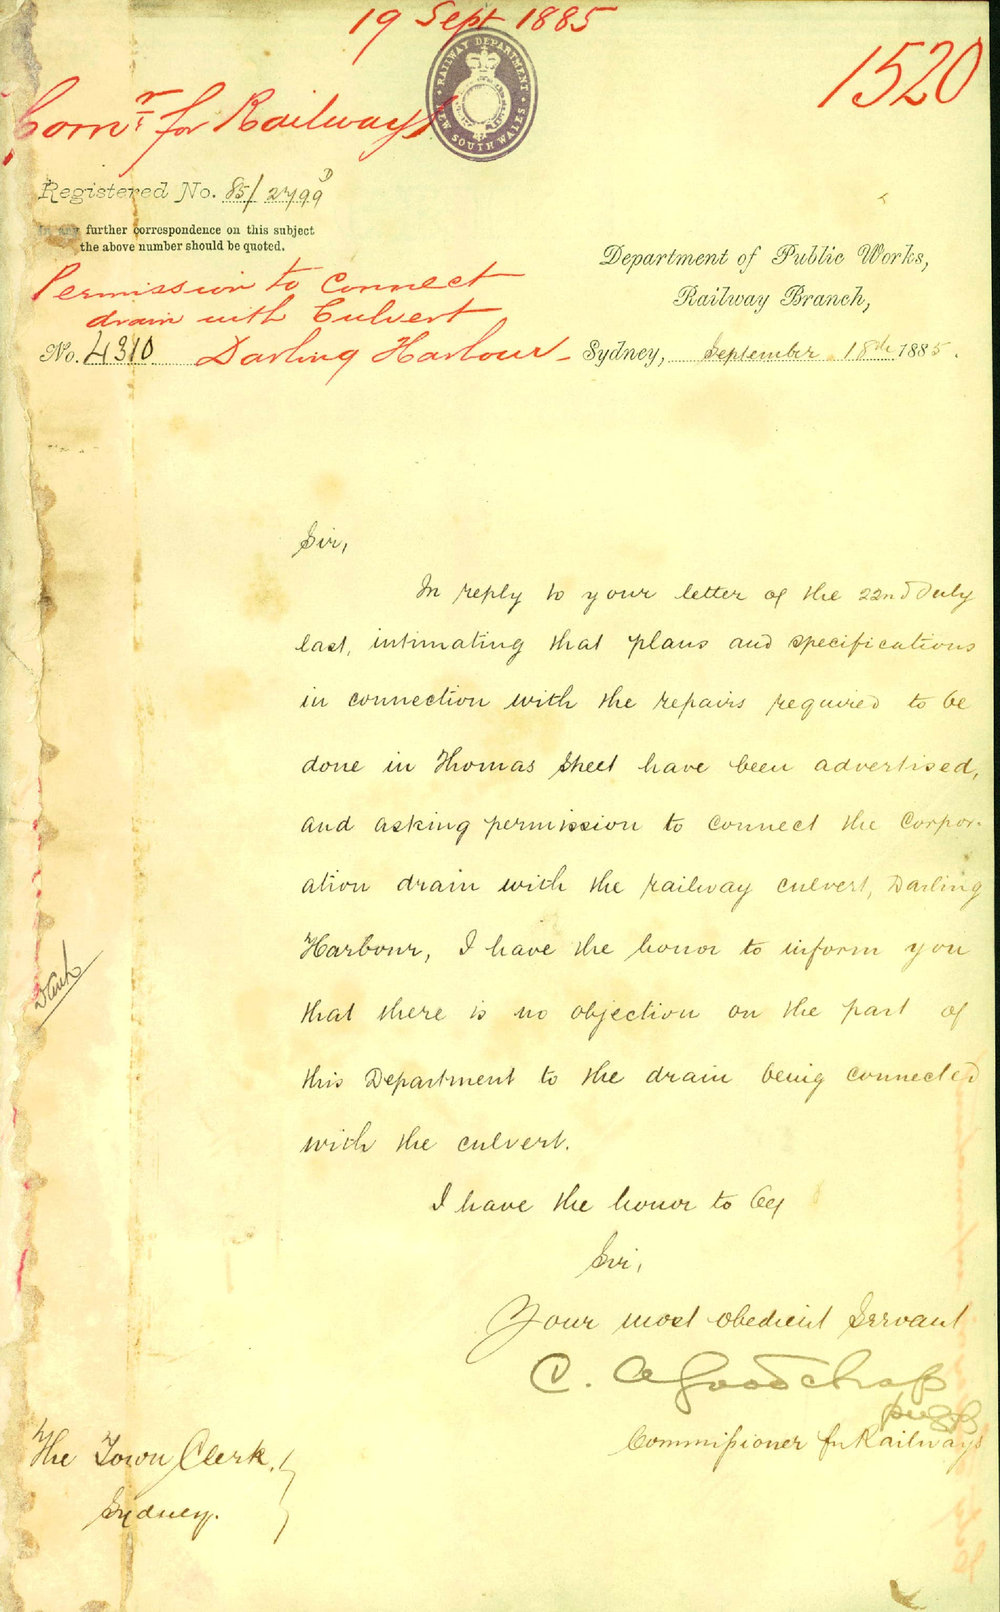 19 Sept 1885
1520
RAILWAY DEPARTMENT
NEW SOUTH WALES
Comr for Railways
Registered No. 85/2799 D
In any further correspondence on this subject
the above number should be quoted.
Permission to Connect
drain with Culvert
Darling Harbour -
No. 4310
Department of Public Works,
Railway Branch,
Sydney, September 18th 1885.
Sir,
In reply to your letter of the 22nd July
last, intimating that plans and specifications
in connection with the repairs required to be
done in Thomas Street have been advertised,
and asking permission to connect the Corpor-
ation drain with the railway culvert, Darling
Harbour, I have the honor to inform you
that there is no objection on the part of
this Department to the drain being connected
with the culvert.
I have the honor to be
Sir,
Your most obedient Servant
C. A Goodchap
Commissioner for Railways
The Town Clerk,
Sydney.